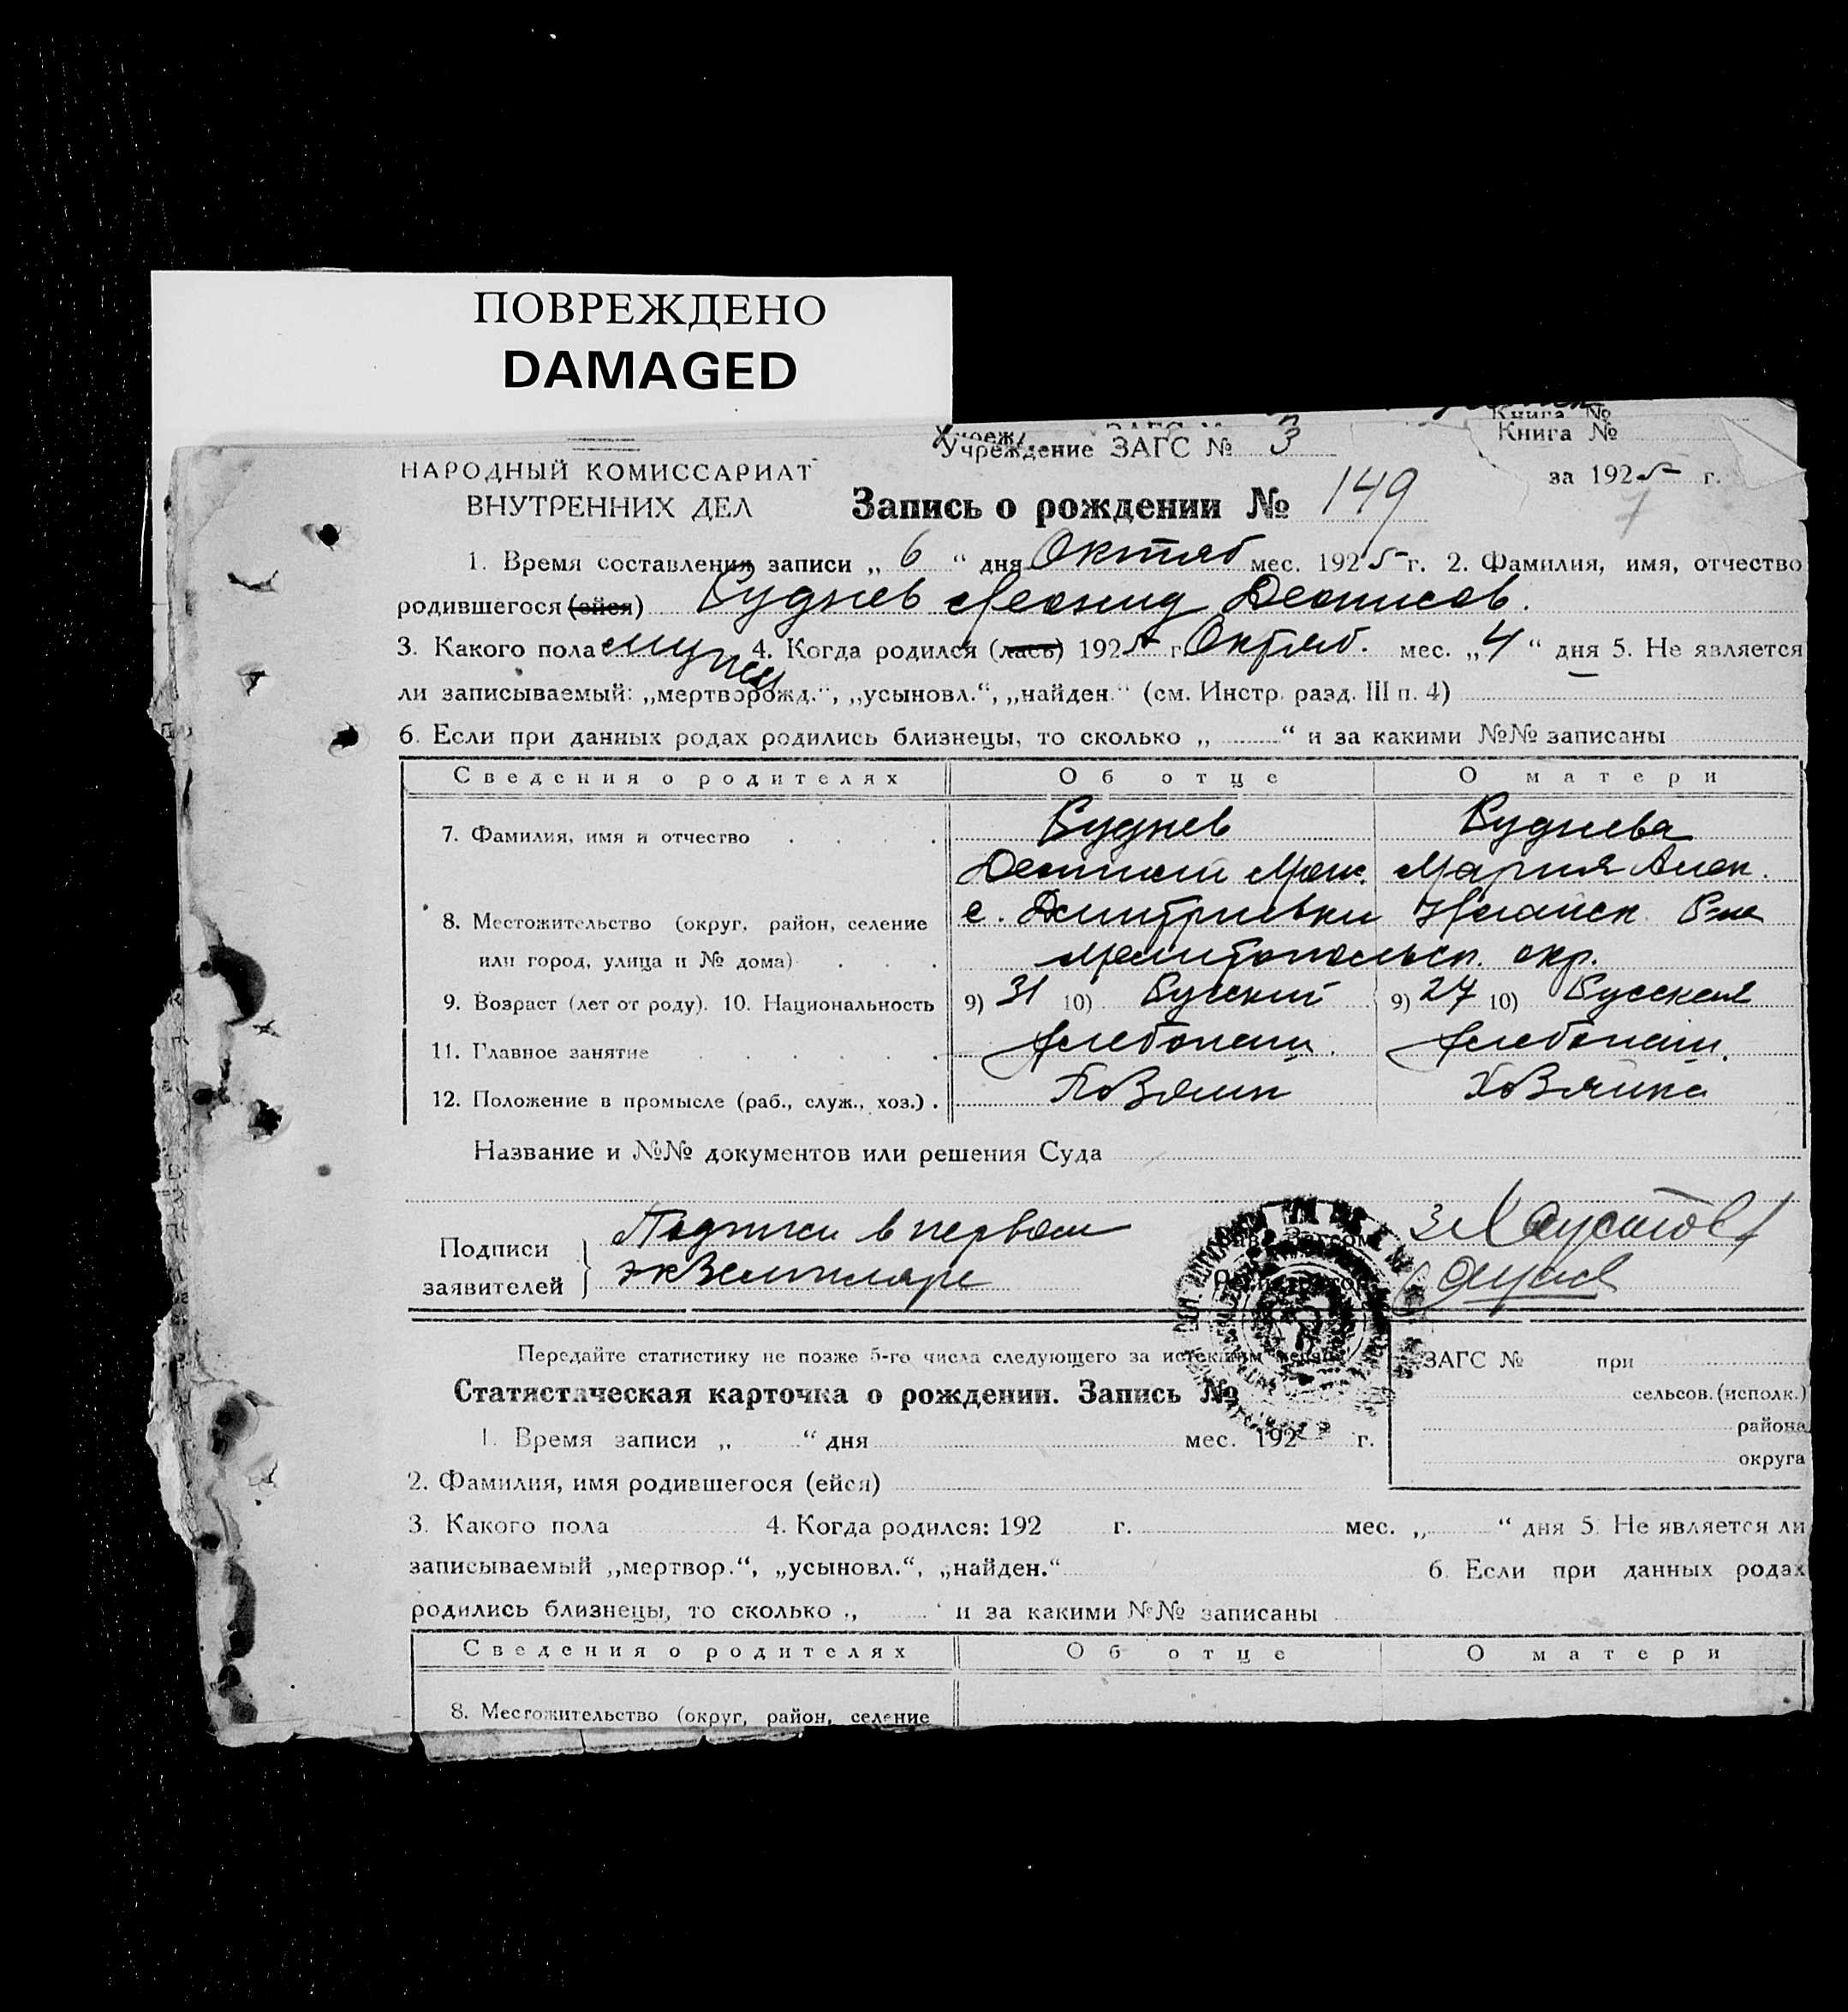 ПОВРЕЖДЕНО
DAMAGED
Книга №
Учреждение ЗАГС № 3 Книга №
НАРОДНЫЙ КОМИССАРИАТ
ВНУТРЕННИХ ДЕЛ
за 1925 г.
Запись о рождении № 149
7
1. Время составления записи „ 6 “ дня Октяб мес. 1925 г. 2. Фамилия, имя, отчество
родившегося (ейся) Руднев Леонид Деонисов.
3. Какого пола мужск 4. Когда родился (лась) 1925 г. Октяб. мес. „ 4 “ дня 5. Не является
ли записываемый: „мертворожд.“, „усыновл.“, „найден.“ (см. Инстр. разд. III п. 4)
6. Если при данных родах родились близнецы, то сколько „ “ и за какими №№ записаны
Сведения о родителях Об отце О матери
7. Фамилия, имя и отчество Руднев Руднева
Деонисий Мария
8. Местожительство (округ, район, селение с. Дмитриевки
или город, улица и № дома) Мелитопольск. окр.
9. Возраст (лет от роду). 10. Национальность 9) 31 10) Русский 9) 27 10) Русская
11. Главное занятие Хлебопаш. Хлебопаш.
12. Положение в промысле (раб., служ., хоз.) Хозяин Хозяйка
Название и №№ документов или решения Суда
Подписи заявителей Подписи в первом
экземпляре
Передайте статистику не позже 5-го числа следующего за истекшим
ЗАГС № при
Статистическая карточка о рождении. Запись №
сельсов. (исполк.)
района
1. Время записи „ “ дня мес. 192 г.
округа
2. Фамилия, имя родившегося (ейся)
3. Какого пола 4. Когда родился: 192 г. мес. „ “ дня 5. Не является ли
записываемый „мертвор.“, „усыновл.“, „найден.“ 6. Если при данных родах
родились близнецы, то сколько „ “ и за какими №№ записаны
Сведения о родителях Об отце О матери
8. Местожительство (округ, район, селение